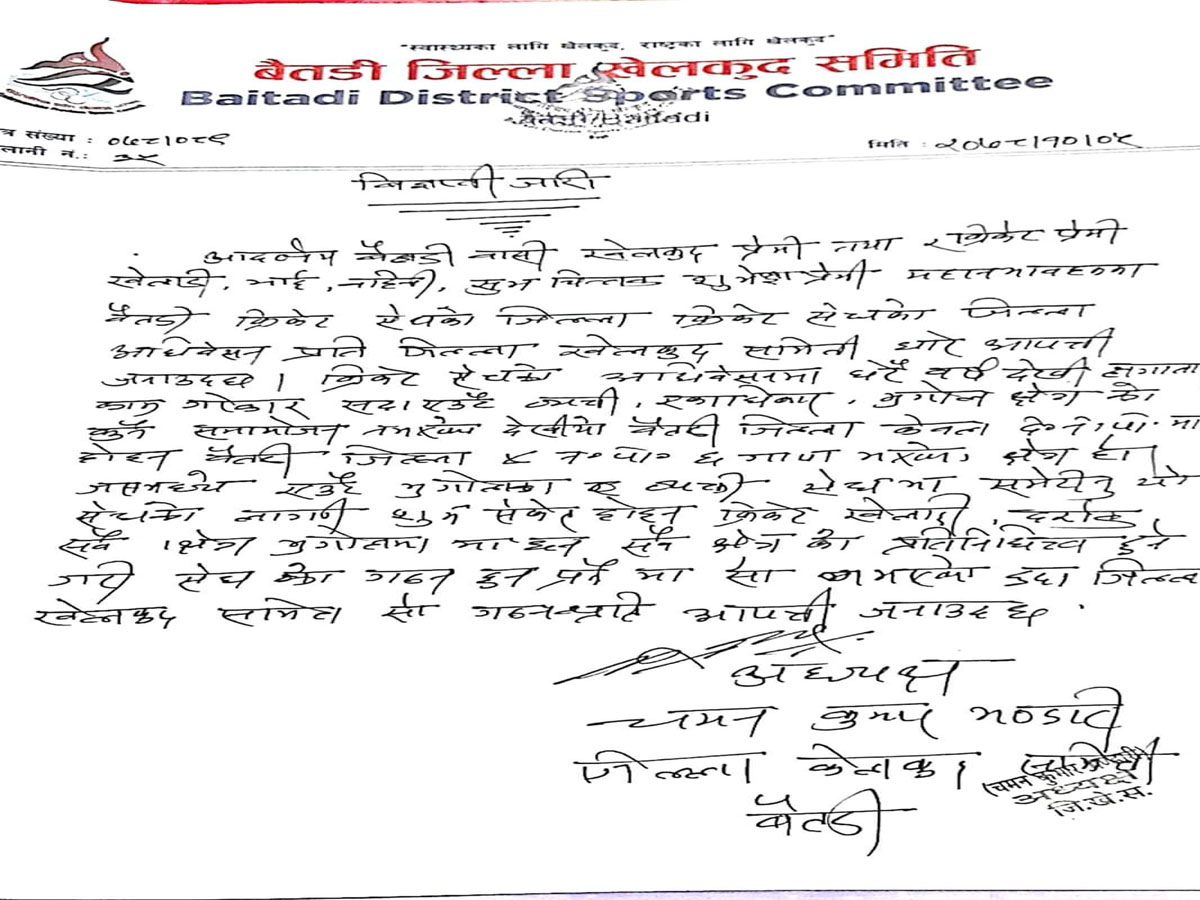 "स्वास्थ्यका लागि खेलकुद, राष्ट्रका लागि खेलकुद"
बैतडी जिल्ला खेलकुद समिति
Baitadi District Sports Committee
बैतडी/Baitadi
त्र संख्या : ०७८/०७९
लानी नं.: ३५
मिति : २०७८/१०/०५
विज्ञप्ती जारी
आदरणीय बैतडी वासी खेलकुद प्रेमी तथा क्रिकेट प्रेमी
खेलाडी, भाई, वहिनी, सुभ चिन्तक प्रेमी महानुभावहरुमा
बैतडी क्रिकेट संघको जिल्ला क्रिकेट संघको जिल्ला
अधिवेसन प्रति जिल्ला खेलकुद समिती घोर आपत्ती
जनाउदछ। क्रिकेट संघको अधिवेसनमा धेरै वर्ष देखी लगातार
काम गरेकार सदा एउटै व्यक्ती, भुगोल क्षेत्र को
कुनै समायोजन नभएको देखीयो बैतडी जिल्ला केवल द.न.पा. मा
होइन बैतडी जिल्ला ४ न०पा० ६ गापा भएको क्षेत्र हो।
जसमध्ये एउटै भुगोलका व्यक्ती संघमा समेटीनु यो
संघको लागी शुभ संकेत होइन क्रिकेट खेलाडी, दर्शक
सवै क्षेत्र भुगोलमा सवै क्षेत्र को प्रतिनिधित्व हुने
गरी संघ को गठन हुन पर्ने मा सो नभएको हुदा जिल्ला
खेलकुद समिति सो गठनप्रति आपत्ती जनाउदछ.
अध्यक्ष
चमन कुमार भण्डारी
जिल्ला खेलकुद समिती
बैतडी
(चमन कुमार भण्डारी)
अध्यक्ष
जि.खे.स.